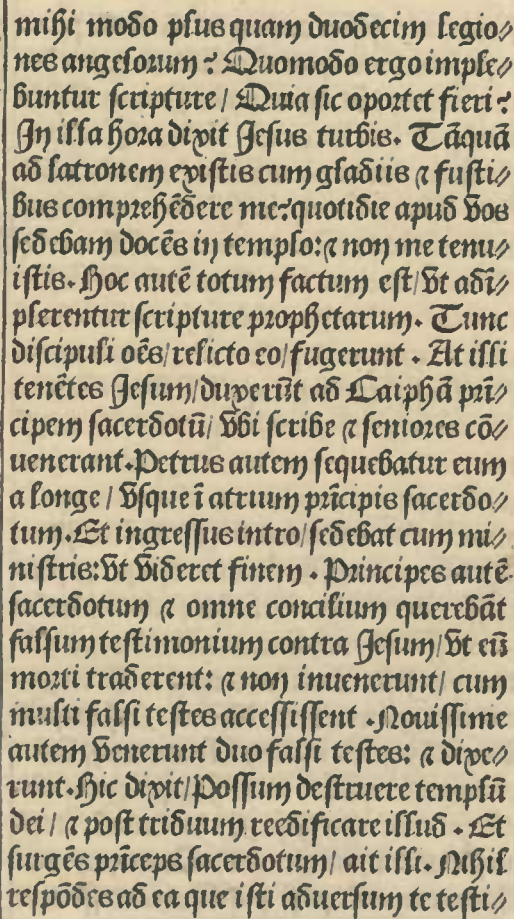 mihi modo plus quam duodecim legio⸗
nes angelorum? Quomodo ergo imple⸗
buntur scripture / Quia sic oportet fieri?
In illa hora dixit Jesus turbis. Tãquã
ad latronem existis cum gladiis ⁊ fusti⸗
bus comprehẽdere me? quotidie apud vos
sedebam docẽs in templo: ⁊ non me tenu⸗
istis. Hoc autẽ totum factum est / vt adi⸗
plerentur scripture prophetarum. Tunc
discipuli oẽs / relicto eo / fugerunt. At illi
tenẽtes Jesum / duxerũt ad Caiphã prĩ⸗
cipem sacerdotũ / vbi scribe ⁊ seniores cõ⸗
uenerant. Petrus autem sequebatur eum
a longe / vsque ĩ atrium prĩcipis sacerdo⸗
tum. Et ingressus intro / sedebat cum mi⸗
nistris: vt videret finem. Principes autẽ
sacerdotum ⁊ omne concilium querebãt
falsum testimonium contra Jesum / vt eũ
morti traderent: ⁊ non inuenerunt / cum
multi falsi testes accessissent. Nouissime
autem venerunt duo falsi testes: ⁊ dixe⸗
runt. Hic dixit / Possum destruere templũ
dei / ⁊ post triduum reedificare illud. Et
surgẽs prĩceps sacerdotum / ait illi. Nihil
respõdes ad ea que isti aduersum te testi⸗